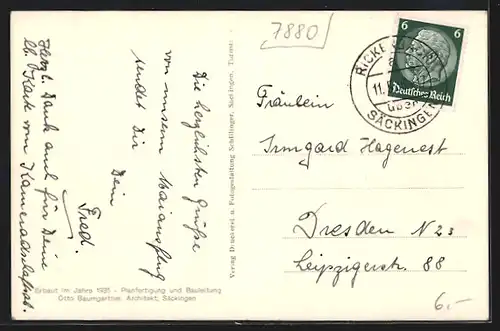 7880
6 6
Deutsches Reich
RICKE
11.
über
SÄCKINGEN
Die herzlichsten Grüße
von unserm Maiausflug
sendet Dir
Dein
Fred.
Herzl. Dank auch für Deine
lb. Karte vom Kameradschaftsab.
Fräulein
Irmgard Hagenest
Dresden N 23
Leipzigerstr. 88
6.-
Verlag Druckerei u. Fotogestaltung Schillinger, Säckingen,
Erbaut im Jahre 1935 - Planfertigung und Bauleitung
Otto Baumgartner, Architekt, Säckingen